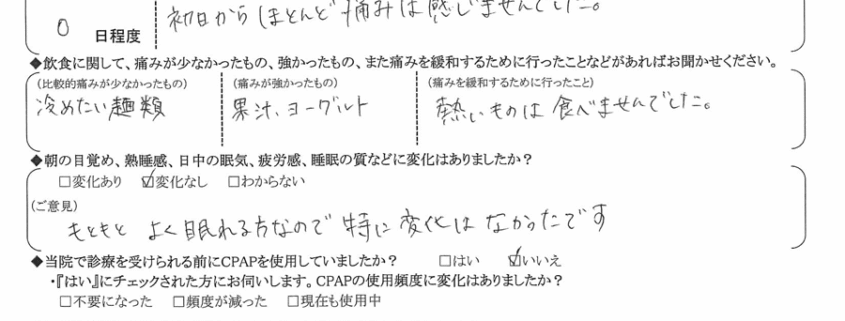 初日からほとんど痛みは感じませんでした。
0 日程度
◆飲食に関して、痛みが少なかったもの、強かったもの、また痛みを緩和するために行ったことなどがあればお聞かせください。
(比較的痛みが少なかったもの) (痛みが強かったもの) (痛みを緩和するために行ったこと)
冷めたい麺類 果汁、ヨーグルト 熱いものは食べませんでした。
◆朝の目覚め、熟睡感、日中の眠気、疲労感、睡眠の質などに変化はありましたか？
□変化あり ☑変化なし □わからない
(ご意見)
もともと よく眠れる方なので 特に変化は なかったです
◆当院で診療を受けられる前にCPAPを使用していましたか？ □はい ☑いいえ
・『はい』にチェックされた方にお伺いします。CPAPの使用頻度に変化はありましたか？
□不要になった □頻度が減った □現在も使用中